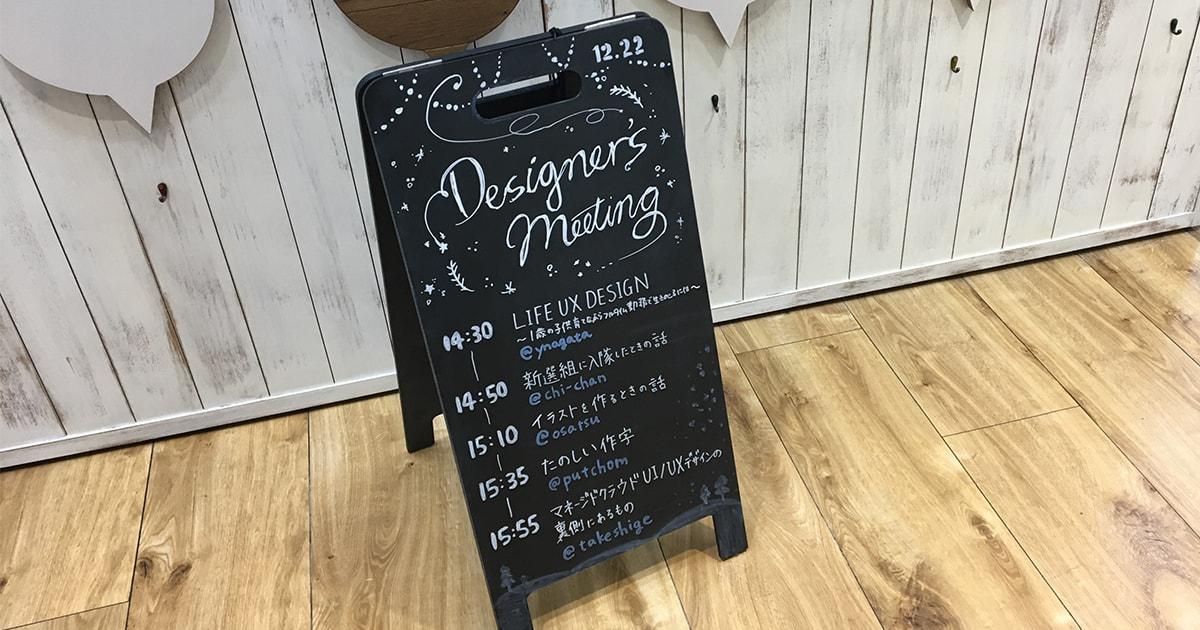 12.22
Designer's
Meeting
14:30 LIFE UX DESIGN
〜1歳の子供育てながらフルタイム勤務で生きのこるには〜
@ynagata
14:50 新選組に入隊したときの話
@chi-chan
15:10 イラストを作るときの話
@osatsu
15:35 たのしい作字
@putchom
15:55 マネージドクラウドUI/UXデザインの
裏側にあるもの
@takeshige